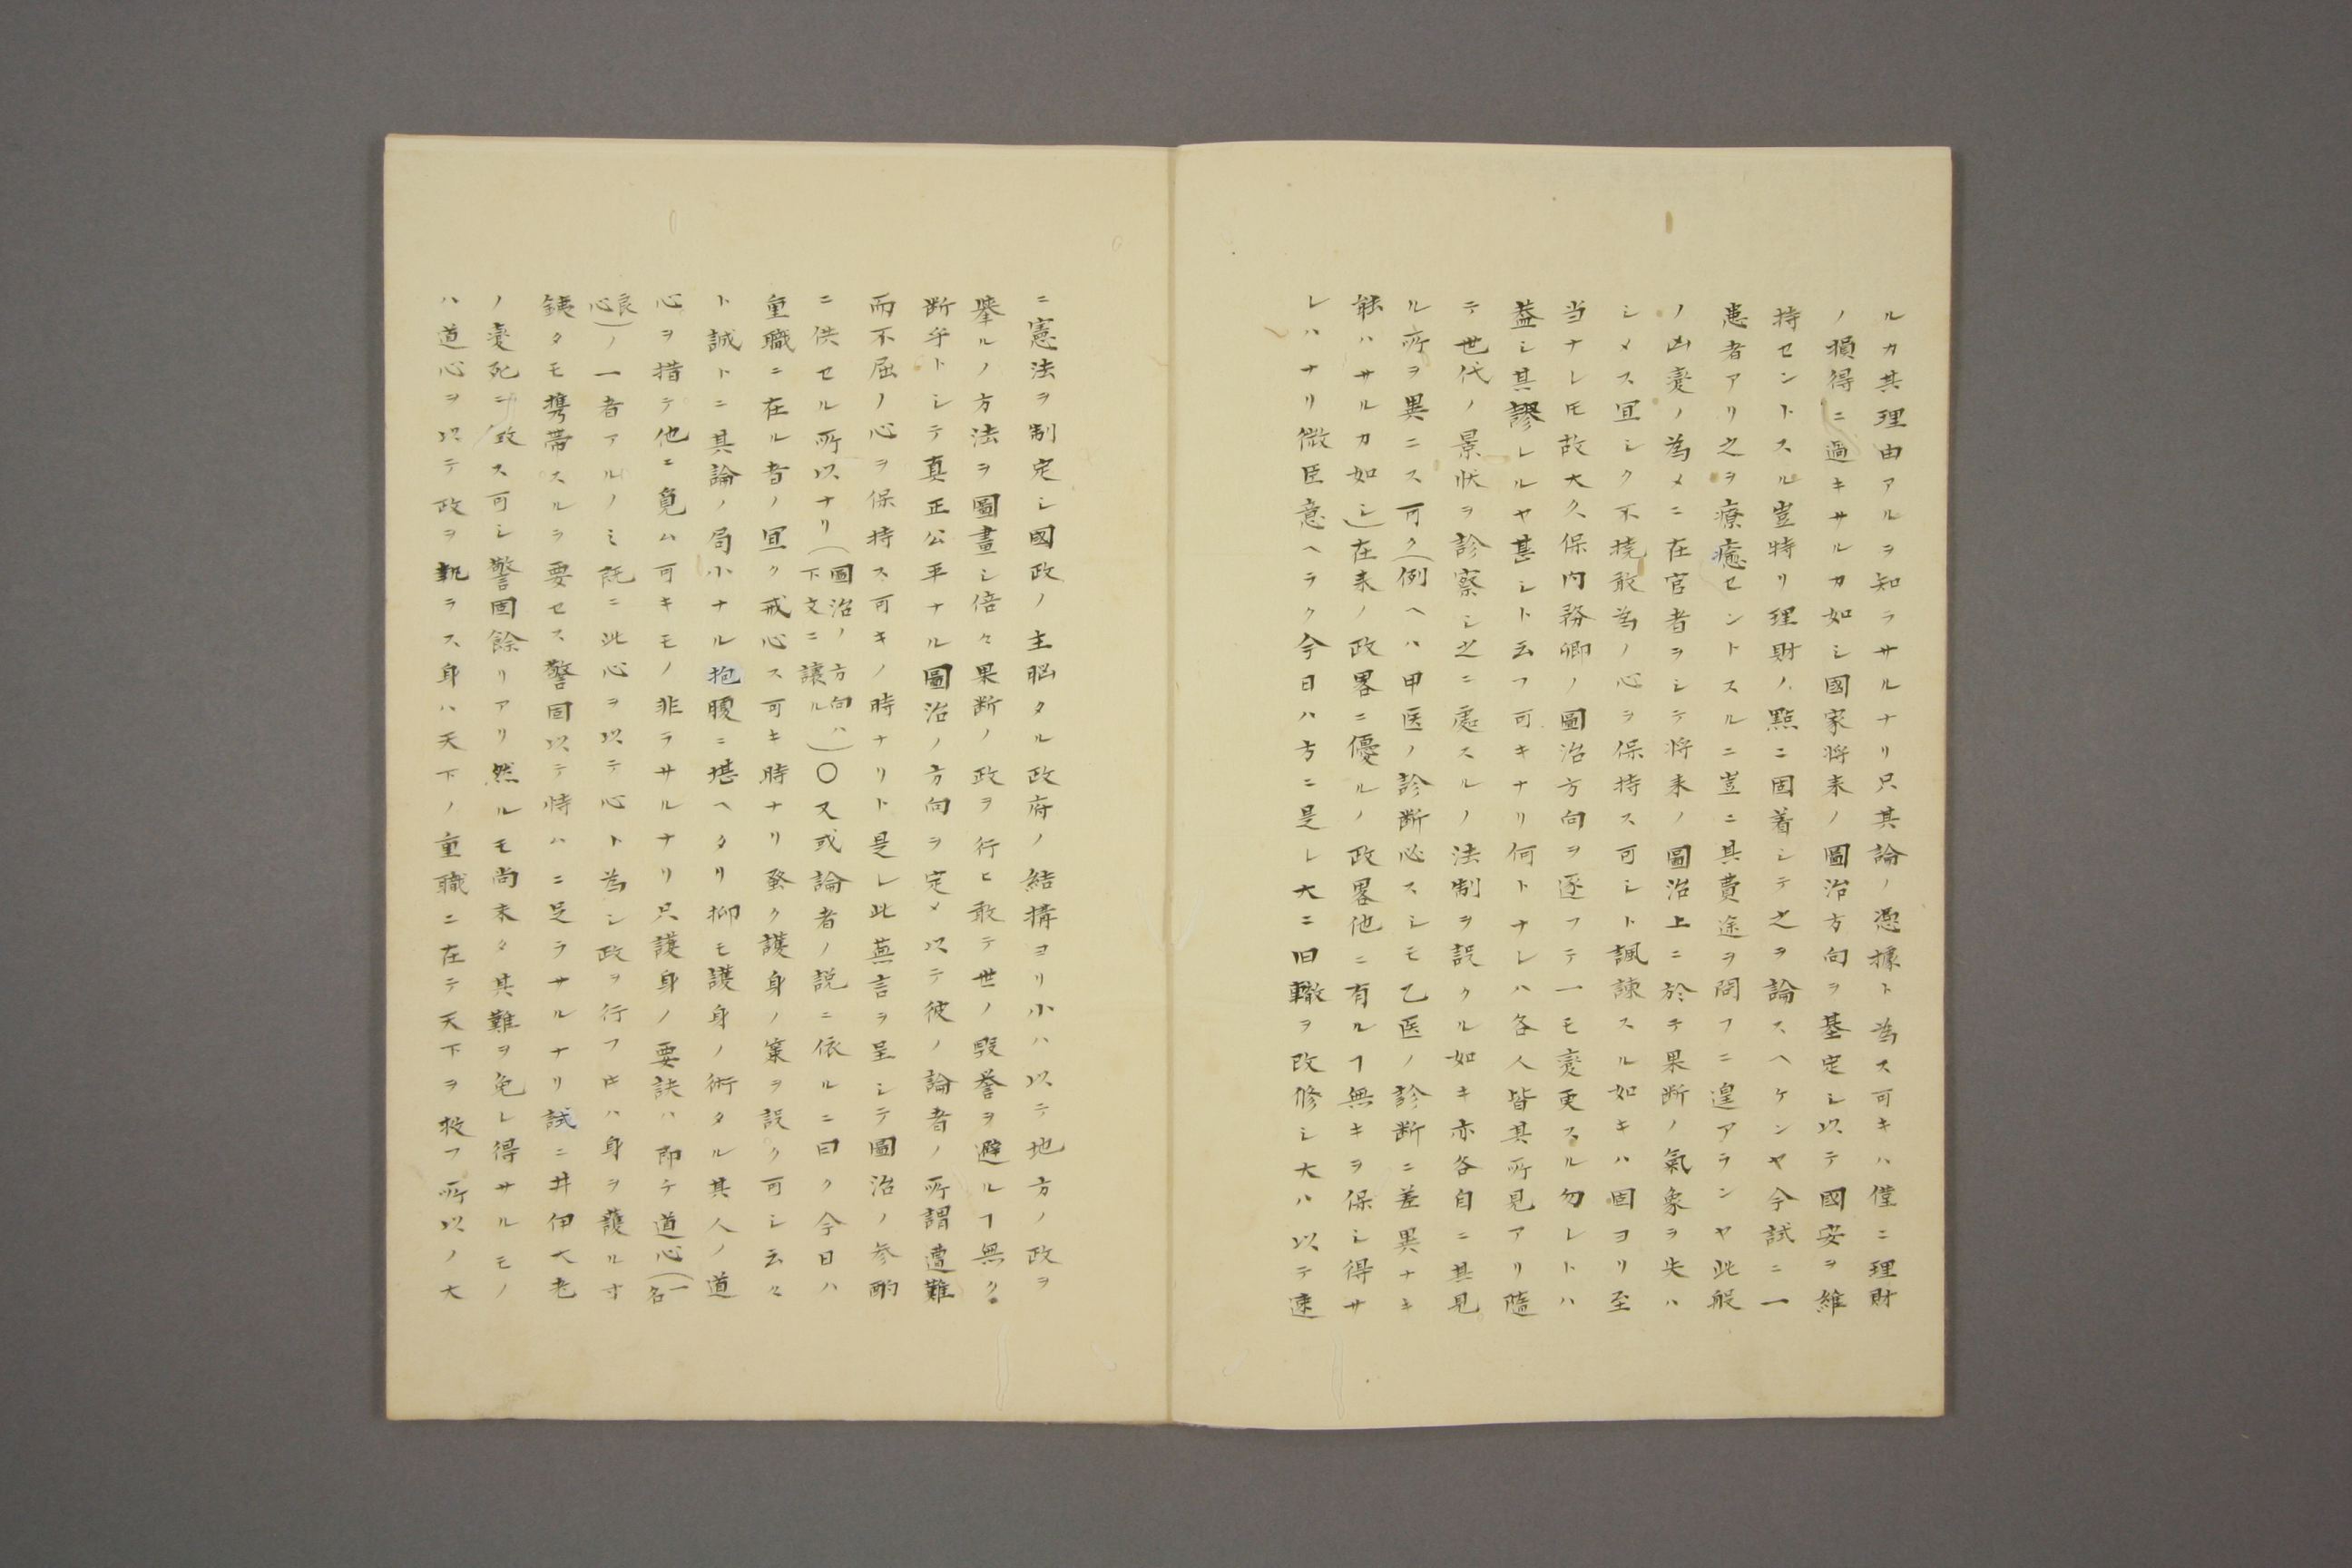 ルカ其理由アルヲ知ラサルナリ只其論ノ憑據ト為ス可キハ僅ニ理財
ノ損得ニ過キサルカ如シ國家将来ノ圖治方向ヲ基定シ以テ國安ヲ維
持セントスル豈特リ理財ノ點ニ固着シテ之ヲ論スヘケンヤ今試ニ一
患者アリ之ヲ療癒セントスルニ豈ニ其費途ヲ問フニ遑アランヤ此般
ノ凶変ノ為メニ在官者ヲシテ将来ノ圖治上ニ於テ果断ノ氣象ヲ失ハ
シメス冝シク不撓敢為ノ心ヲ保持ス可シト諷諫スル如キハ固ヨリ至
当ナレ𪜈故大久保内務卿ノ圖治方向ヲ逐フテ一モ変更スル勿レトハ
蓋シ其謬レルヤ甚シト云フ可キナリ何トナレハ各人皆其所見アリ隨
テ世代ノ景状ヲ診察シ之ニ處スルノ法制ヲ設クル如キ亦各自ニ其見
ル所ヲ異ニス可ク(例ヘハ甲医ノ診断必スシモ乙医ノ診断ニ差異ナキ
能ハサルカ如シ)在来ノ政畧ニ優ルノ政畧他ニ有ルヿ無キヲ保シ得サ
レハナリ微臣意ヘラク今日ハ方ニ是レ大ニ旧轍ヲ改修シ大ハ以テ速
ニ憲法ヲ制定シ國政ノ主脳タル政府ノ結構ヨリ小ハ以テ地方ノ政ヲ
挙ルノ方法ヲ圖畫シ倍々果断ノ政ヲ行ヒ敢テ世ノ毀誉ヲ避ルヿ無ク
断乎トシテ真正公平ナル圖治ノ方向ヲ定メ以テ彼ノ論者ノ所謂遭難
而不屈ノ心ヲ保持ス可キノ時ナリト是レ此蕪言ヲ呈シテ圖治ノ参酌
ニ供セル所以ナリ(圖治ノ方向ハ下文ニ讓ル)〇又或論者ノ説ニ依ルニ曰ク今日ハ
重職ニ在ル者ノ冝ク戒心ス可キ時ナリ蚤ク護身ノ策ヲ設ク可シ云々
ト誠トニ其論ノ局小ナル抱腹ニ堪ヘタリ抑モ護身ノ術タル其人ノ道
心ヲ措テ他ニ覓ム可キモノ非ラサルナリ只護身ノ要訣ハ即テ道心(一名
良心)ノ一者アルノミ茍ニ此心ヲ以テ心ト為シ政ヲ行フ𪜈ハ身ヲ護ル寸
鉄タモ携帯スルヲ要セス警固以テ恃ハニ足ラサルナリ試ニ井伊大老
ノ変死ニ致ス可シ警固餘リアリ然ルモ尚末タ其難ヲ免レ得サルモノ
ハ道心ヲ以テ政ヲ執ラス身ハ天下ノ重職ニ在テ天下ヲ救フ所以ノ大